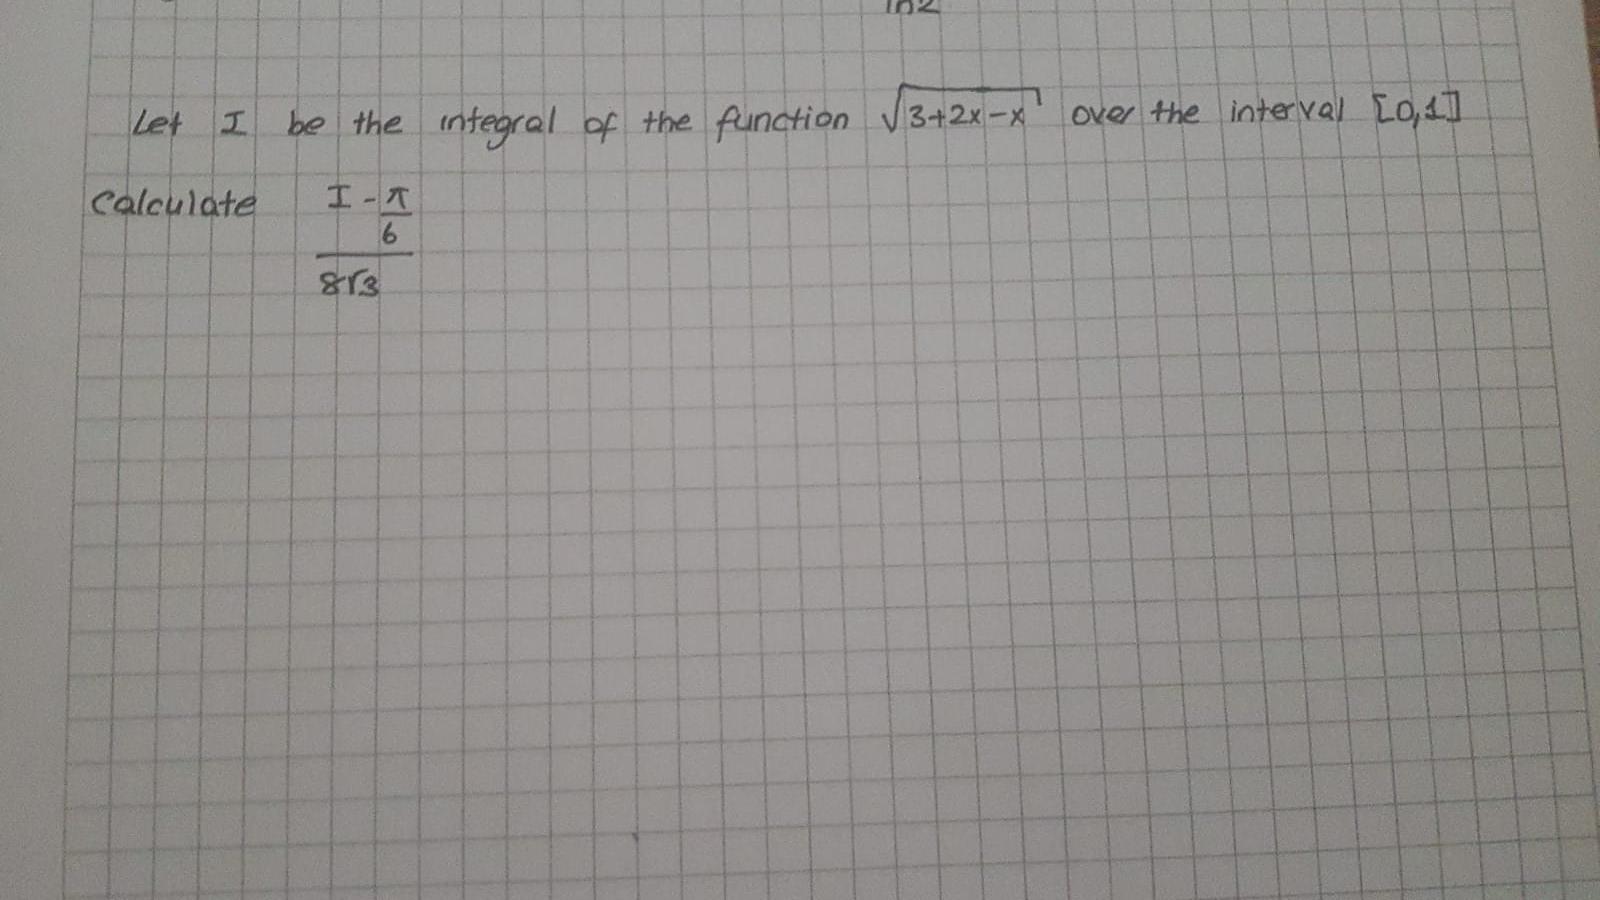 ln2
Let I be the integral of the function √3+2x-x over the interval [0,1]
Calculate I - π/6
8√3